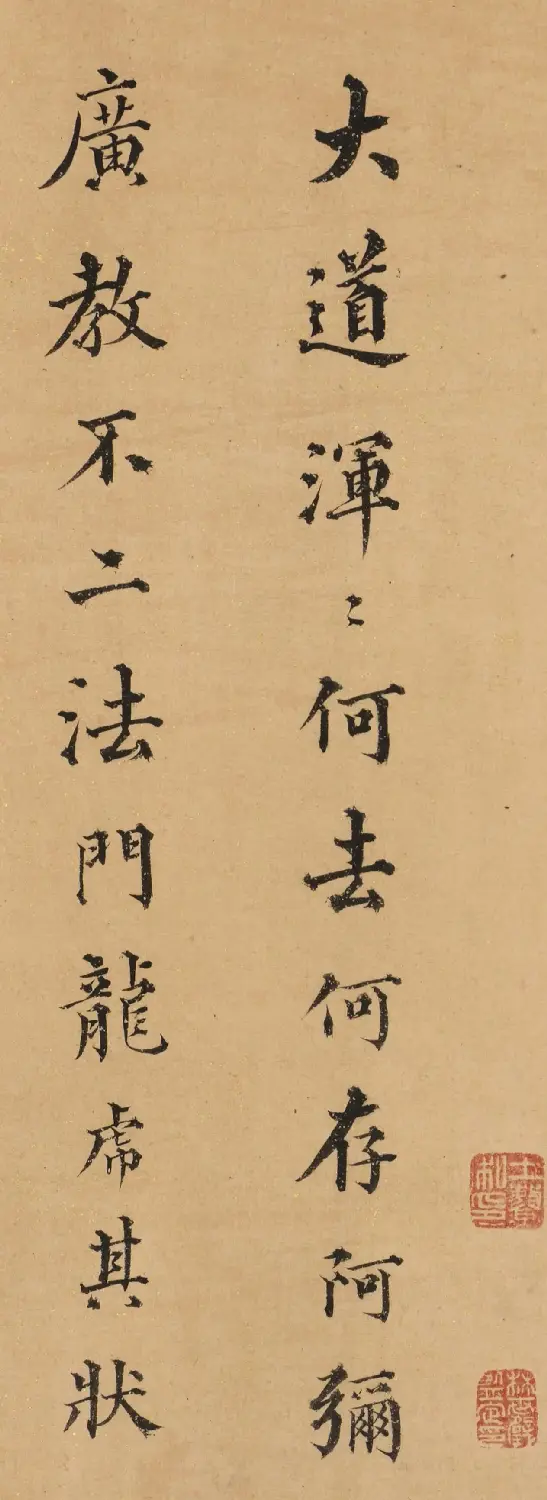 大道渾〻何去何存阿彌
廣教不二法門龍虎其狀